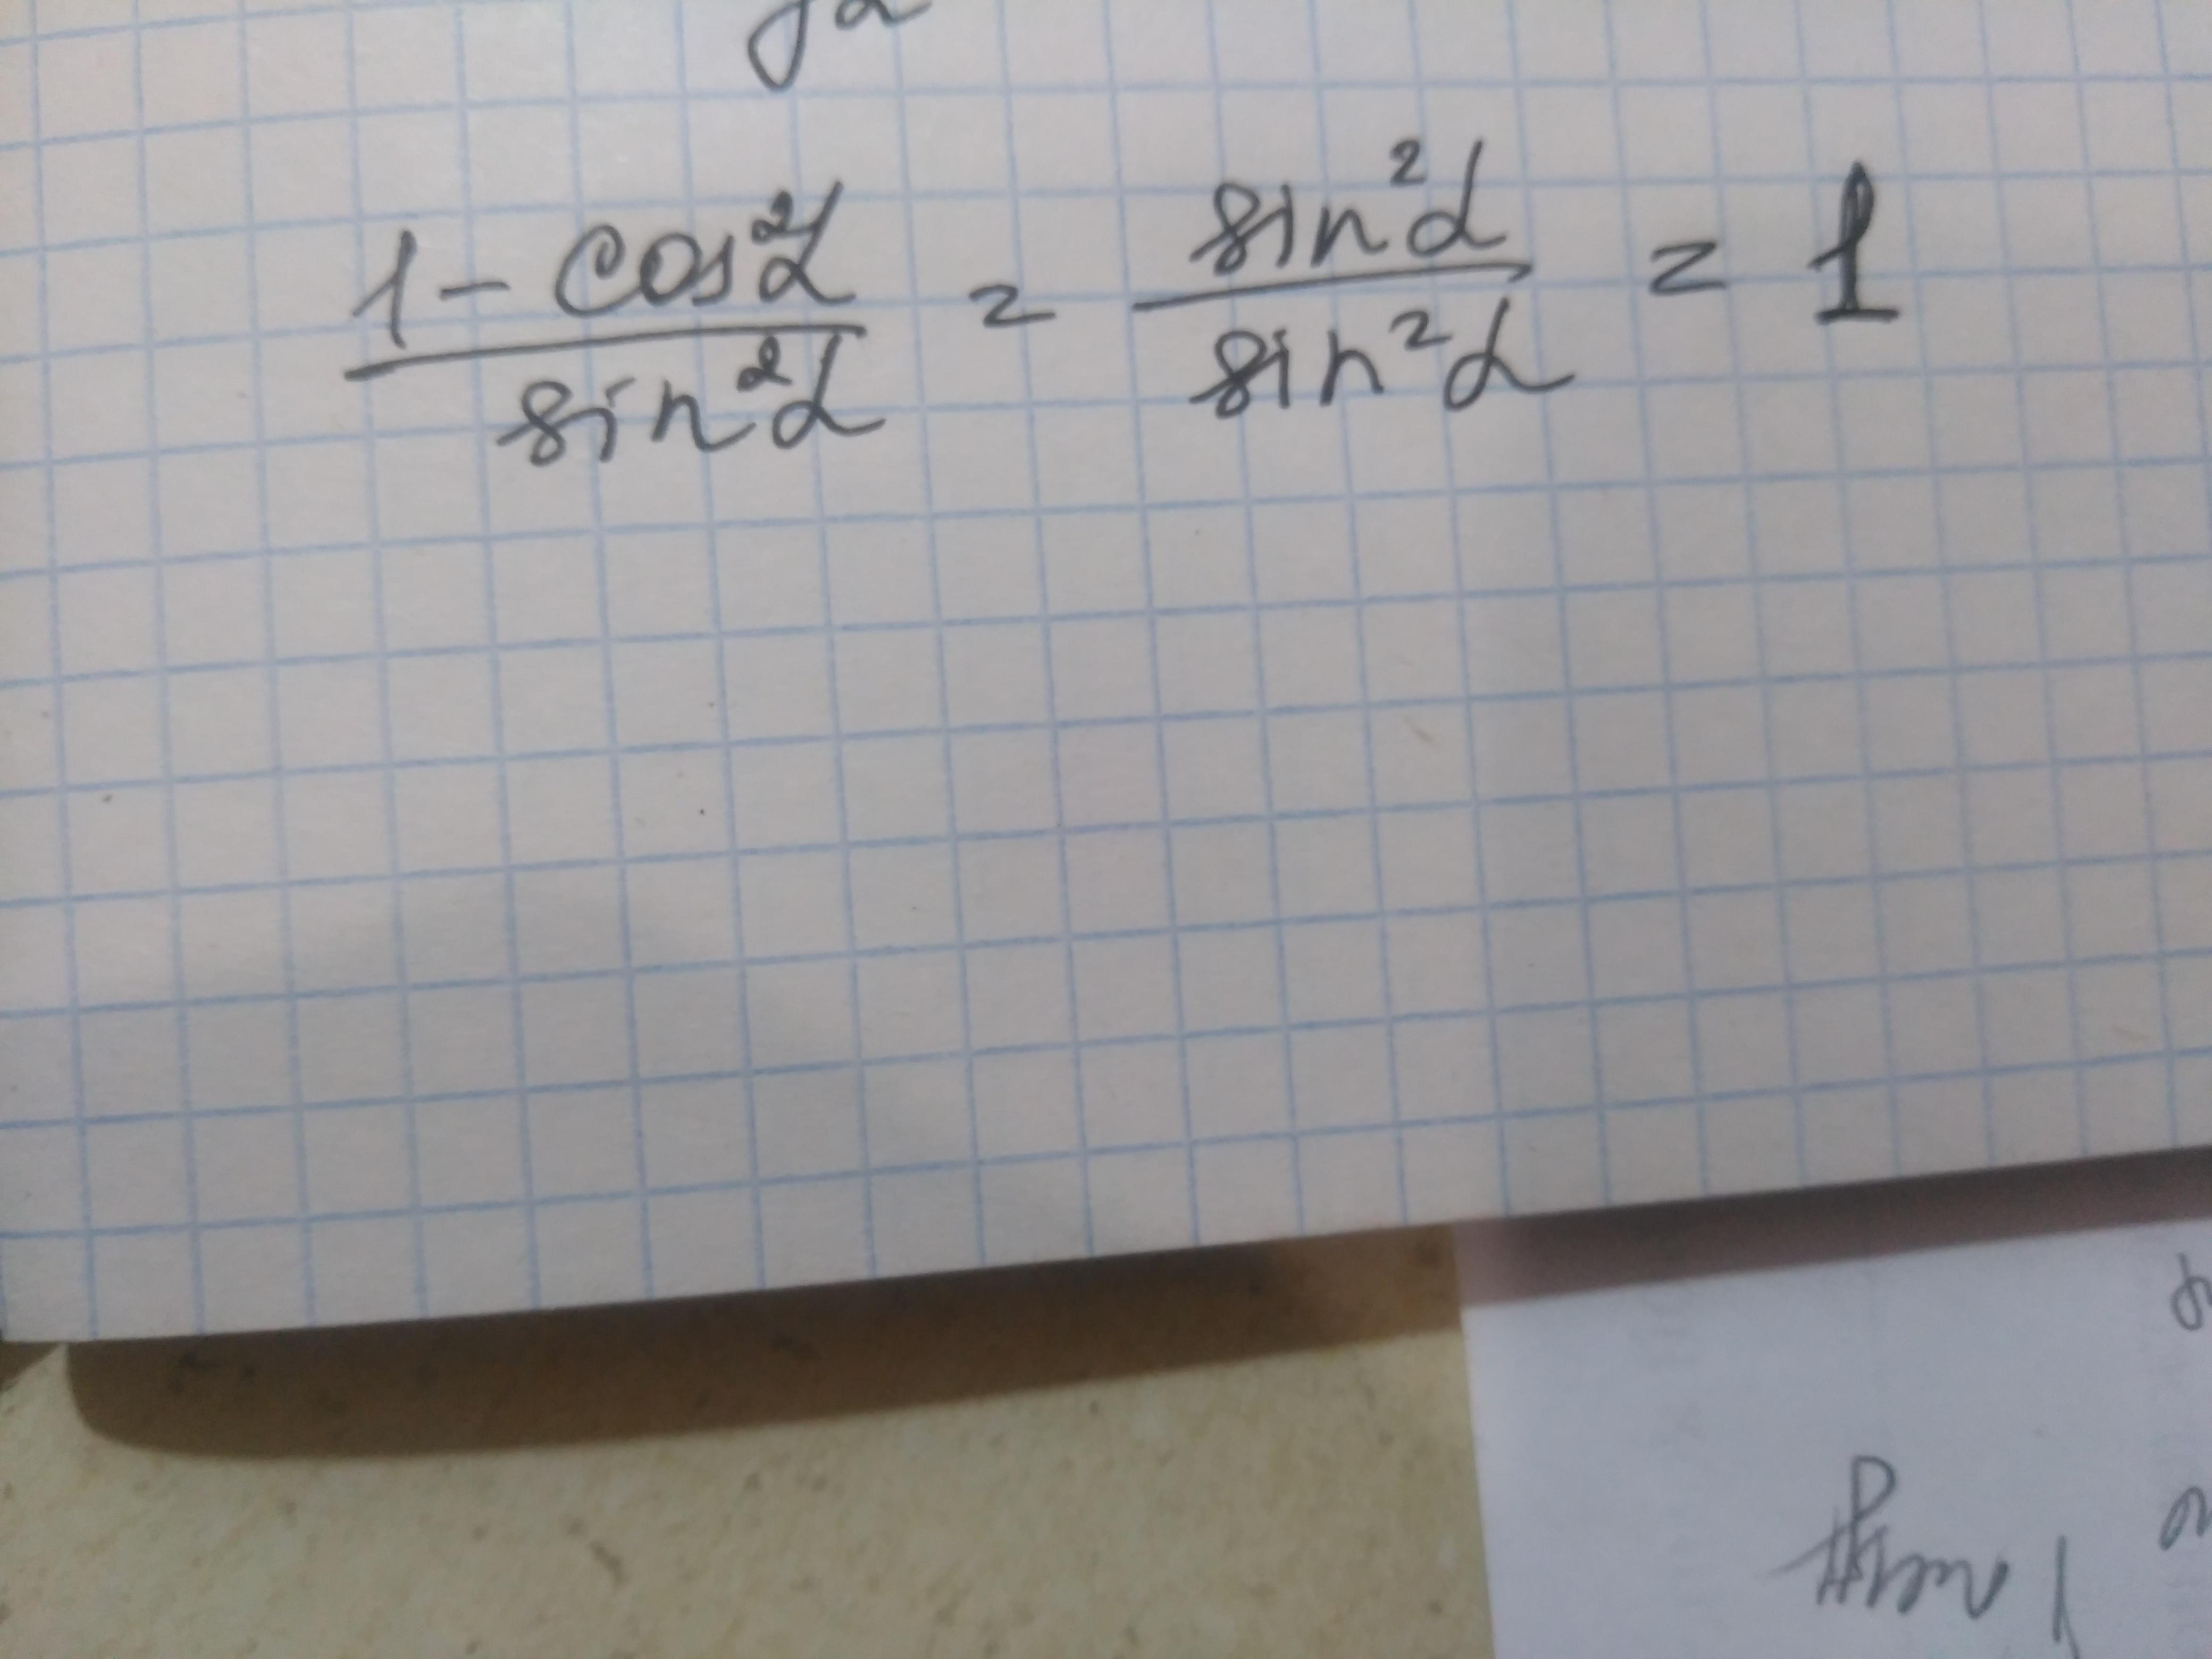 (1 - cos²α) / (sin²α) = (sin²α) / (sin²α) = 1